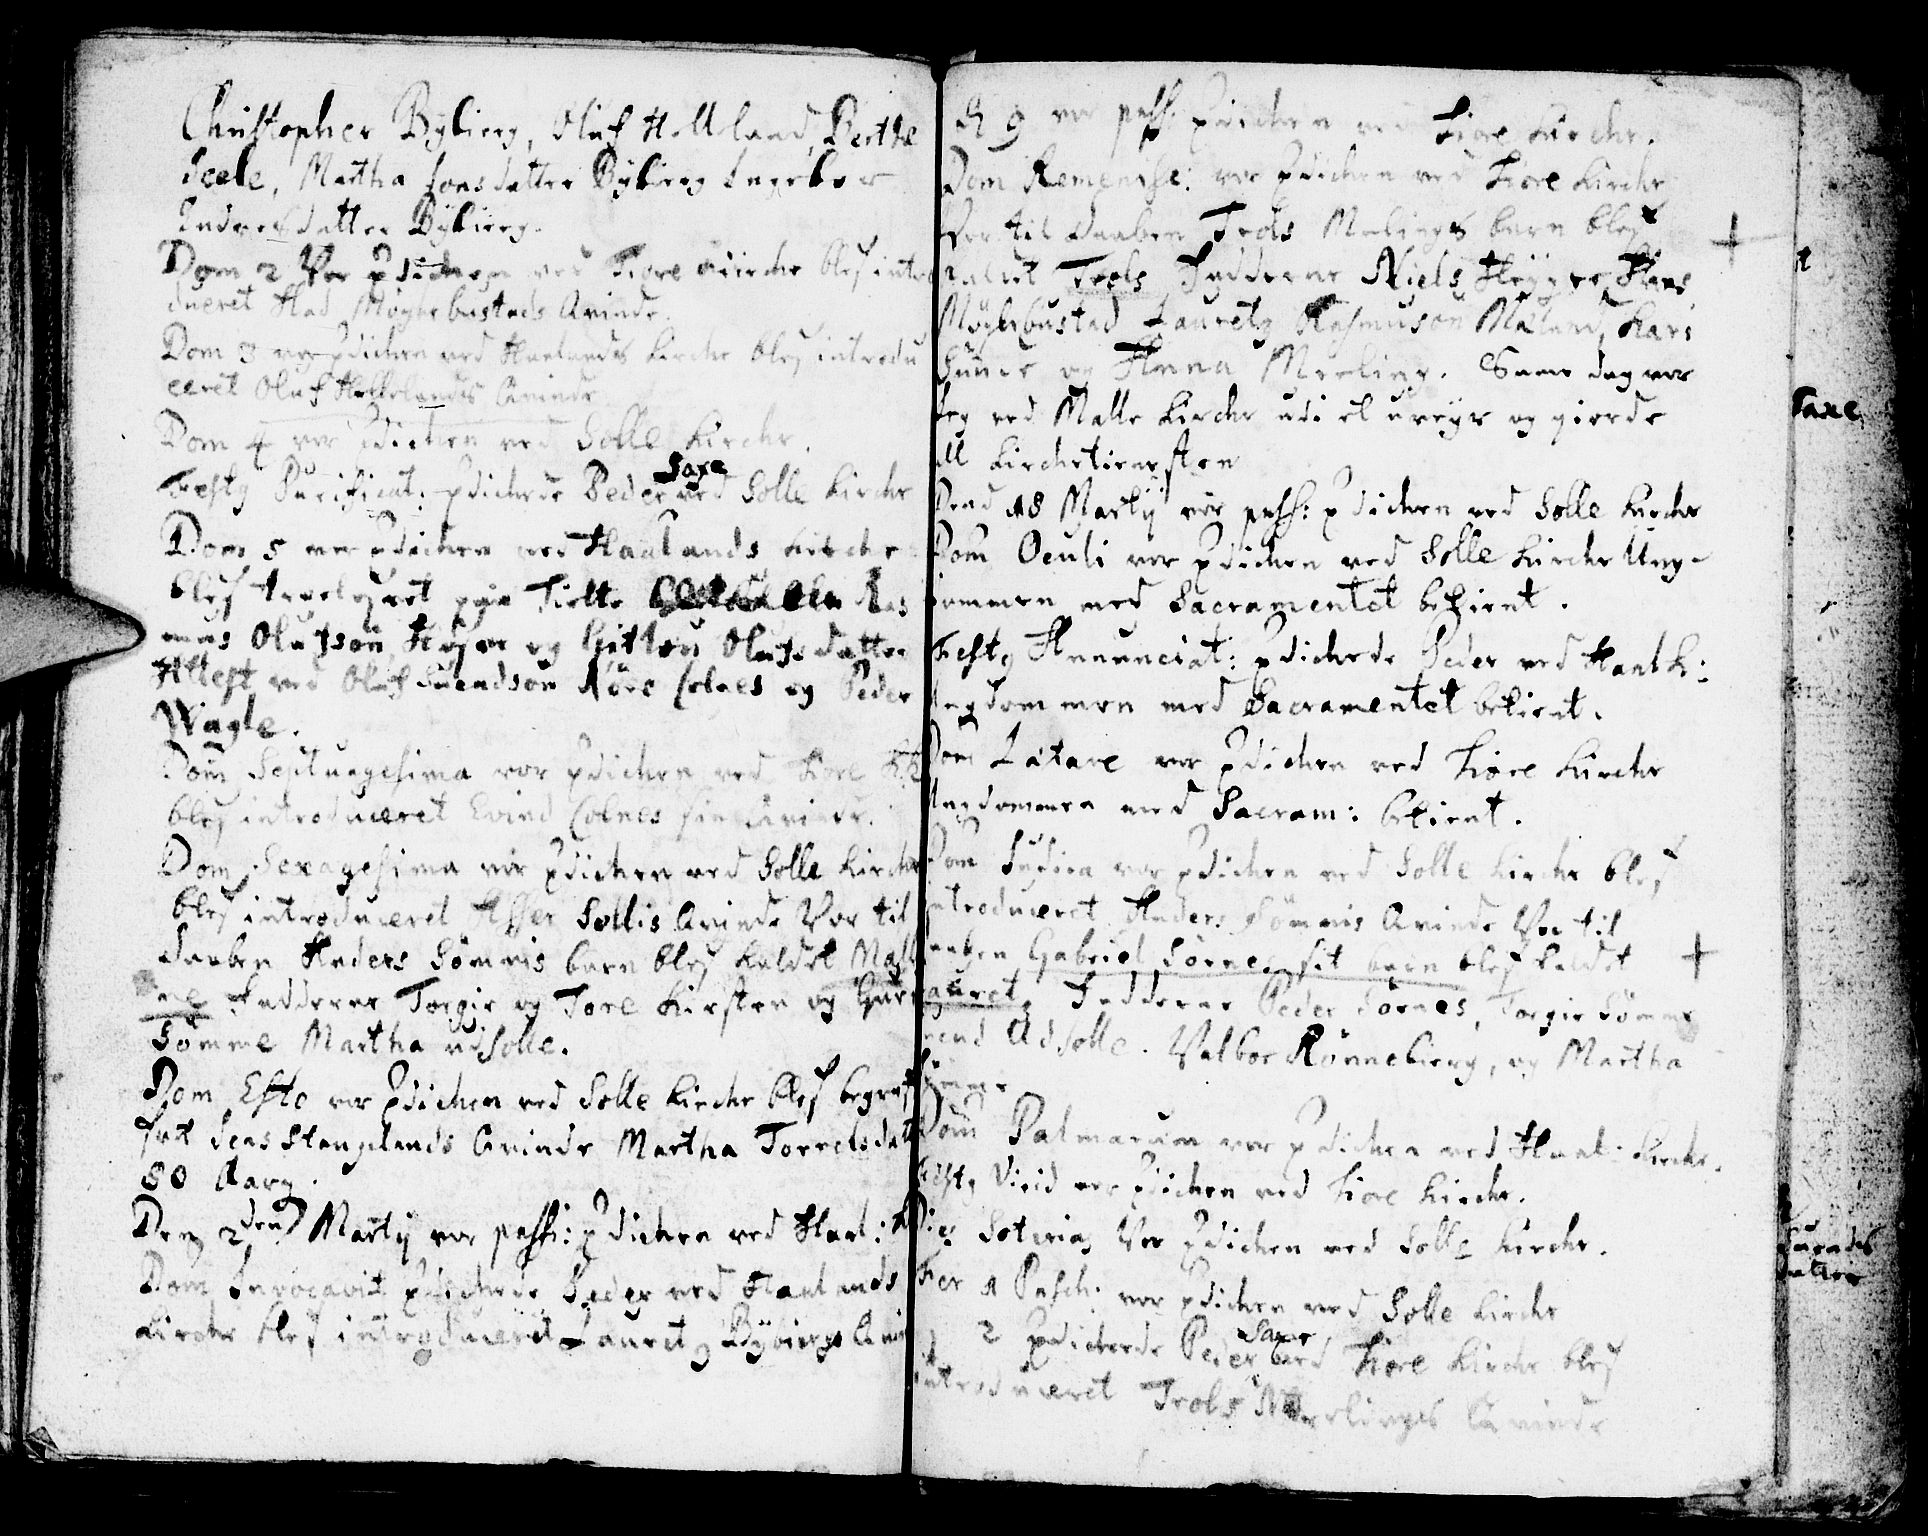 Christopher Bybierg, Oluf Holland, Berthe
Seele, Martha Jonsdatter Bybierg Ingebor
Endresdatter Bybierg.
Dom 2 Var Prdichen ved Tiore Kirche blef intro
duceret Had Mÿglebustads Qvinde.
Dom 3 var Prdichen ved Haalands Kirche blef introdu
ceret Oluf Hollelands Qvinde
Dom 4 var Prdichen ved Solle Kirche.
Festo Purificat: prdichede Peder Saxe ved Solle Kirche
Dom 5 var prdichen ved Haalands Kirche
blef troelofvet pige Tielte Ras
mus Olufson og Olufsdatter
Attest ved Oluf Suendson Nore Colnes og Peder
Wagle.
Dom Septuagesima var prdichen ved Tiore K
blef introduceret Evind Colnes sin Qvinde.
Dom Sexagesima var prdichen ved Solle Kirche
blef introduceret Asser Sollis Qvinde Var til
Daaben Anders Sömmis barn blef kaldet Mal
ne Fadderne Torgir og Tore Kirsten og Gur
Sömme Martha udsolle.
Dom Esto var prdichen ved Solle Kirche blef begraf
fvet Seas Stangelands Qvinde Martha Torrelsdatt
80 Aarg.
Den 2den Martÿ var passi: prdichen ved Haal: K
Dom Invocavit prdichede Peder ved Haalands
Kirche blef introduceret Lauretz Bybiergs Qvin
D 9 var pass: prdichen ved Tiore Kirche.
Dom Remenisse: var prdichen ved Tiore Kirche
Var til Daaben Trols Melings barn blef
kaldet Trols Fadderne Niels Hans
Mÿglebustad Lauretz Rasmuson Mæland, Kari
og Anna Meeling. Same dag var
Jeg ved Malle Kirche udi et og giorde
all Kirchetienesten
Dend 18 Martÿ var pass: prdichen ved Solle Kirche
Dom Oculi var prdichen ved Solle Kirche Ung-
dommen med Sacramentet betient.
Festo Annunciat: prdichede Peder ved Haal K:
Ungdommen med Sacramentet betient.
Dom Lætare var prdichen ved Tiore Kirche
Ungdommen med Sacram: betient.
Dom Judica var prdichen ved Solle Kirche blef
introduceret Anders Sömmis Qvinde Var til
Daaben Gabriel Sörnes sit barn blef kaldet
Lauretz Fadderne Peder Sörnes, Torgir Sömme
Udsolle. Valbor Rönnebierg, og Martha
Sömme
Dom Palmarum var prdichen ved Haal: Kirche.
Festo Virid var prdichen ved Tiore Kirche.
Dies Soterias Var prdichen ved Solle Kirche.
Fer 1 Pasch. var prdichen ved Solle Kirche
2 prdichede Peder Saxe ved Tiore Kirche blef
introduceret Trols Meelinges Qvinde
Saxe